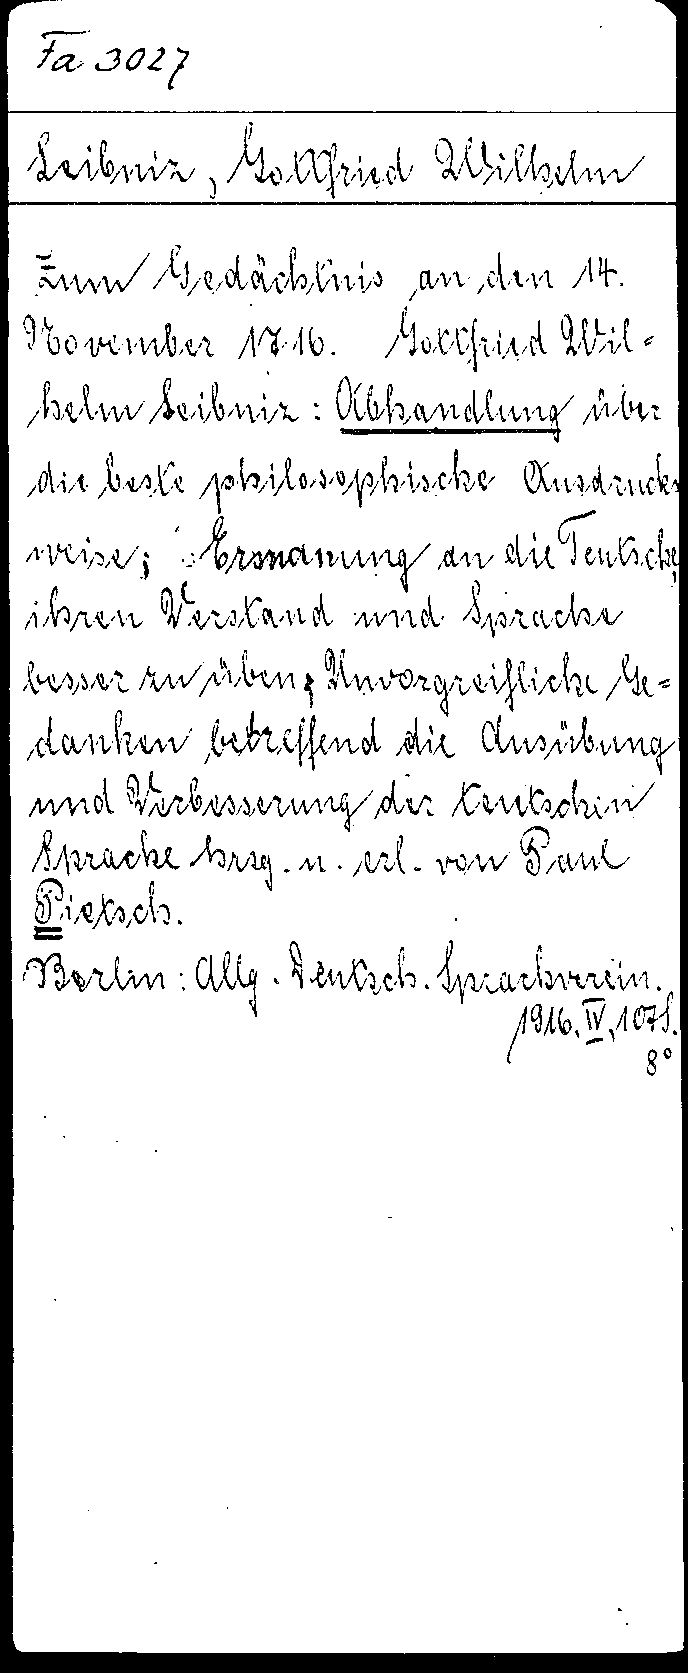 Fa 3027
Leibniz, Gottfried Wilhelm
Zum Gedächtnis an den 14.
November 1716. Gottfried Wil-
helm Leibniz: Abhandlung über
die beste philosophische Ausdrucks
weise; Ermanung an die Teutsche,
ihren Verstand und Sprache
besser zu üben; Unvorgreifliche Ge-
danken betreffend die Ausübung
und Verbesserung der teutschen
Sprache hrsg. u. erl. von Paul
Pietsch.
Berlin: Allg. Deutsch. Sprachverein.
1916. IV, 107 S.
8°